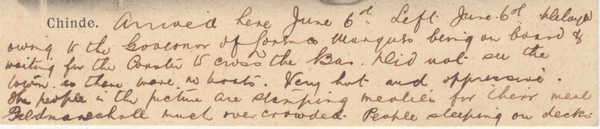 Chinde. Arrived here June 6th. Left June 6th delayed
owing to the Governor of Lorenco Marques being on board &
waiting for the Coaster to cross the Bar. Did not see the
town as there were no boats. Very hot and oppressive.
The people in the picture are stamping mealies for their meal
Feldmarschall much overcrowded. People sleeping on deck.